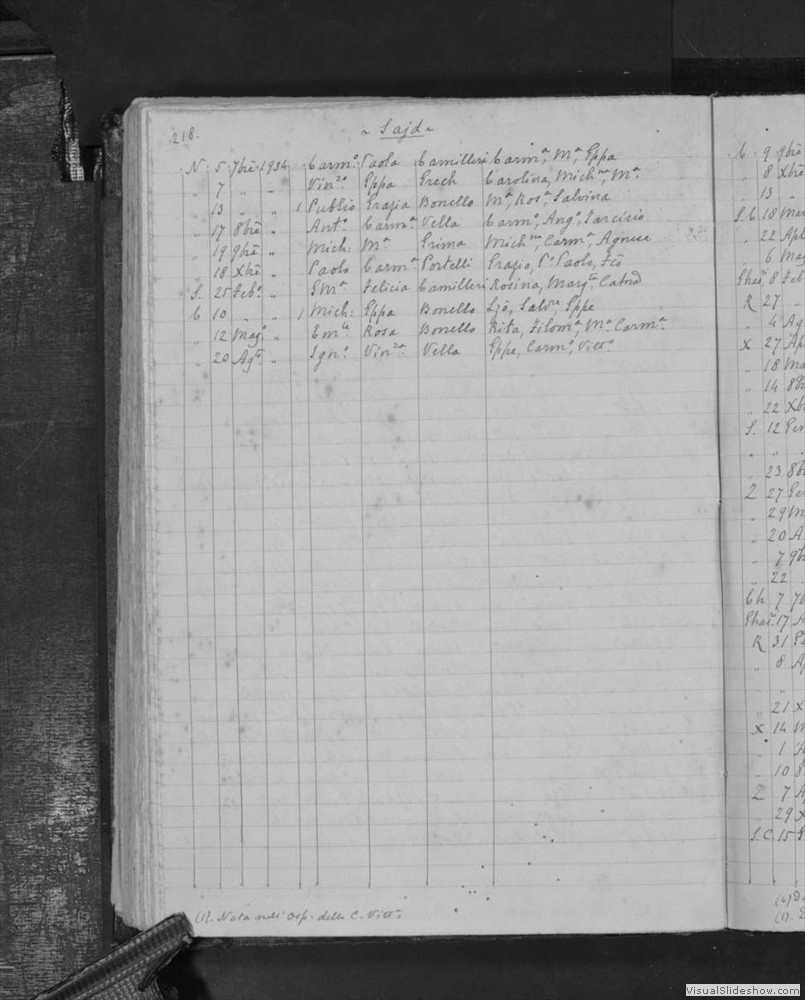 218.
~ Sajd ~
N 5 7bre 1934 Carmo. Paola Camilleri Carma, Ma, Eppa
" 7 " " Vinzo. Eppa Grech Carolina, Michna, Ma.
" 13 " " 1 Publio Grazia Bonello Ma, Rosa, Salvina
" 17 8bre " Anto. Carma. Vella Carmo, Ango, Tarcisio
" 19 9bre " Mich: Ma. Grima Michna, Carma, Agnese
" 18 Xbre " Paolo Carma. Portelli Grazio, Po Paolo,
S. 25 Febo. " Ma. Felicia Camilleri Rosina, Margta,
C 10 " " 1 Mich: Eppa Bonello Salvre, Eppe
" 12 Mago. " Emle. Rosa Bonello Rita, Filoma, Ma. Carma.
" 20 Agto. " Igno. Vinza. Vella Eppe, Carmo, Vitto.
(1). Nata nell' Osp: della C. Vitto:
C. 9 9bre
" 8 Xbre
" 13 "
S.C. 18 Mar
" 22 Apl
" 6 Mag
Ghas. 8 Feb
R 27 "
" 4 Ag
X 27 Ap
" 18 Ma
" 14 8b
" 22 Xb
S. 12 Gen
" "
" 23 8b
Z 27 Ge
" 29 M
" 20 A
" 7 9b
" 22
Ch 7 7b
Ghas. 17 A
R 31 Ge
" 8 A
" "
" 21 X
X 14 M
" 1 A
" 10 8
Z 7 A
" 29 X
S.C. 15
VisualSlideshow.com